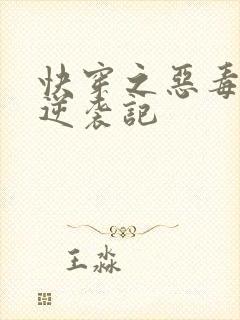 快穿之惡毒
逆袭記
王淼